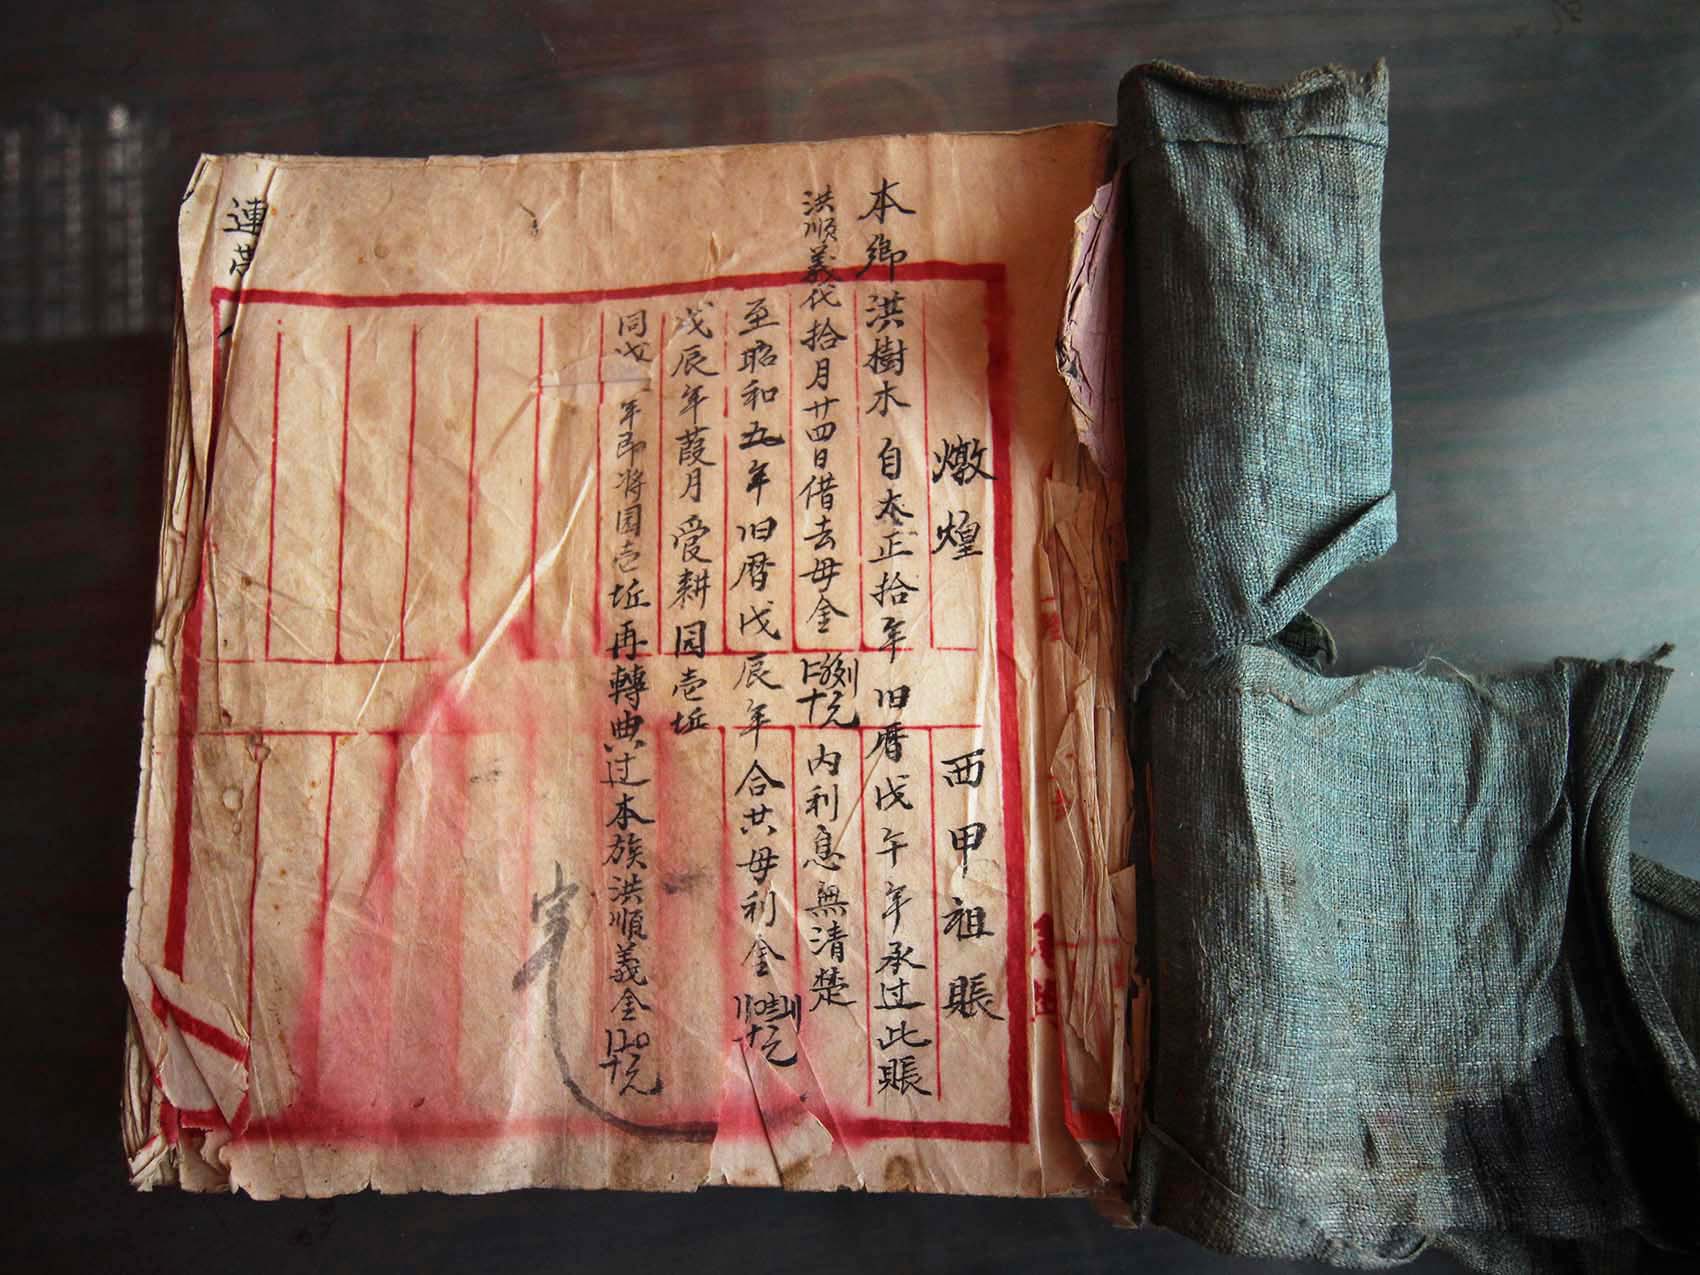 燉煌 西甲祖賬
本鄉洪樹木 自大正拾年旧曆戊午年承过此賬
洪順義代拾月廿四日借去母金 十元 內利息無清楚
至昭和五年旧曆戊辰年合共母利金 十元
戊辰年葭月受耕园壹坵
同戊 年即將园壹坵再轉典过本族洪順義金 十元
完
連